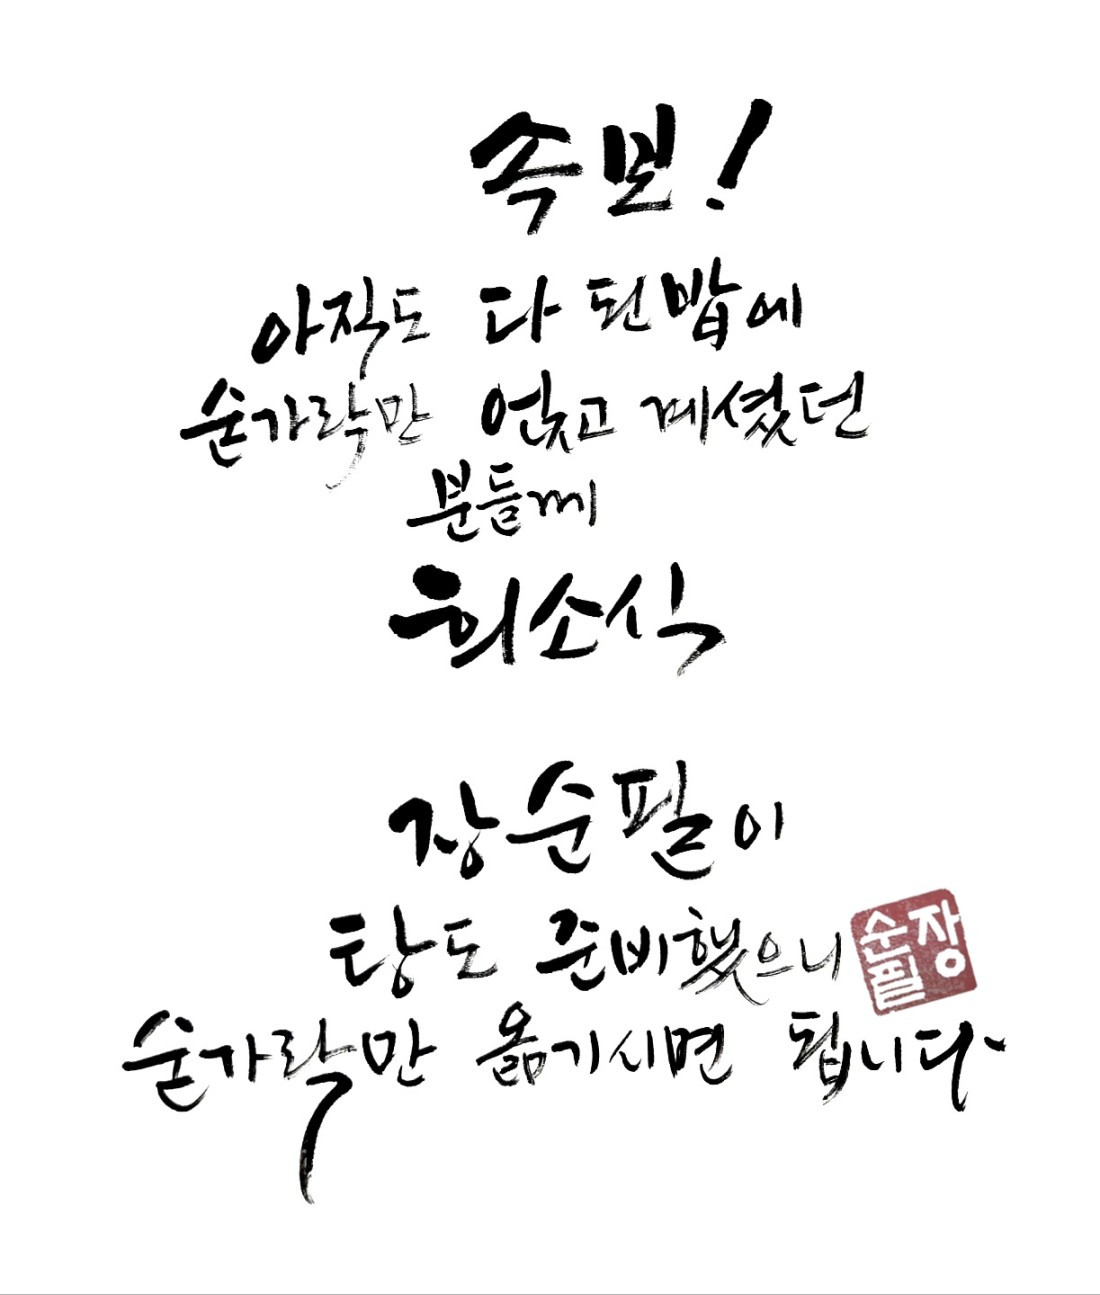 속보!
아직도 다 된 밥에
숟가락만 얹고 계셨던
분들께
희소식
장순필이
탕도 준비했으니
장순필
숟가락만 옮기시면 됩니다